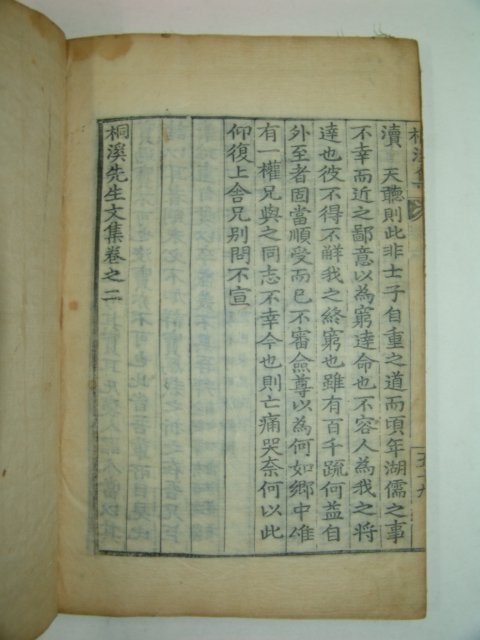 桐溪集
瀆 天聽則此非士子自重之道而頃年湖儒之事
不幸而近之鄙意以為窮達命也不容人為我之將
達也彼不得不觧我之終窮也雖有百千疏何益自
外至者固當順受而已不審僉尊以為何如鄉中
有一權兄與之同志不幸今也則亡痛哭柰何以此
仰復上舍兄別問不宣
桐溪先生文集卷之二